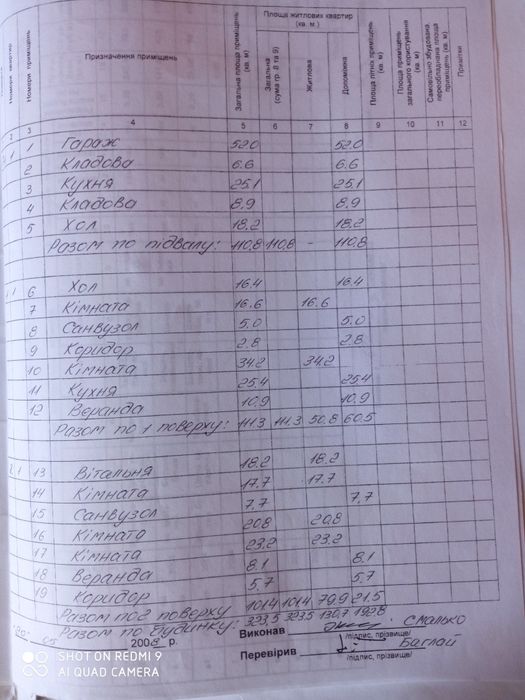 Номери квартир
Номери приміщень
Призначення приміщень
Загальна площа приміщень (кв. м)
Площа житлових квартир (кв. м.)
Загальна (сума гр. 8 та 9)
Житлова
Допоміжна
Площа літніх приміщень (кв. м)
Площа приміщень загального користування (кв. м)
Самовільно збудована, переобладнана площа приміщень (кв. м)
Примітки
2 3 4 5 6 7 8 9 10 11 12
1 1 Гараж 52.0 52.0
2 Кладова 6.6 6.6
3 Кухня 25.1 25.1
4 Кладова 8.9 8.9
5 Хол 18.2 18.2
Разом по підвалу: 110.8 110.8 - 110.8
1 6 Хол 16.4 16.4
7 Кімната 16.6 16.6
8 Санвузол 5.0 5.0
9 Коридор 2.8 2.8
10 Кімната 34.2 34.2
11 Кухня 25.4 25.4
12 Веранда 10.9 10.9
Разом по 1 поверху: 111.3 111.3 50.8 60.5
2 1 13 Вітальня 18.2 18.2
14 Кімната 17.7 17.7
15 Санвузол 7.7 7.7
16 Кімната 20.8 20.8
17 Кімната 23.2 23.2
18 Веранда 8.1 8.1
19 Коридор 5.7 5.7
Разом по 2 поверху 101.4 101.4 79.9 21.5
Разом по будинку: 323.5 323.5 130.7 192.8
05 2008 р.
Виконав Смалько
/підпис, прізвище/
Перевірив Баглай
/підпис, прізвище/
SHOT ON REDMI 9
AI QUAD CAMERA